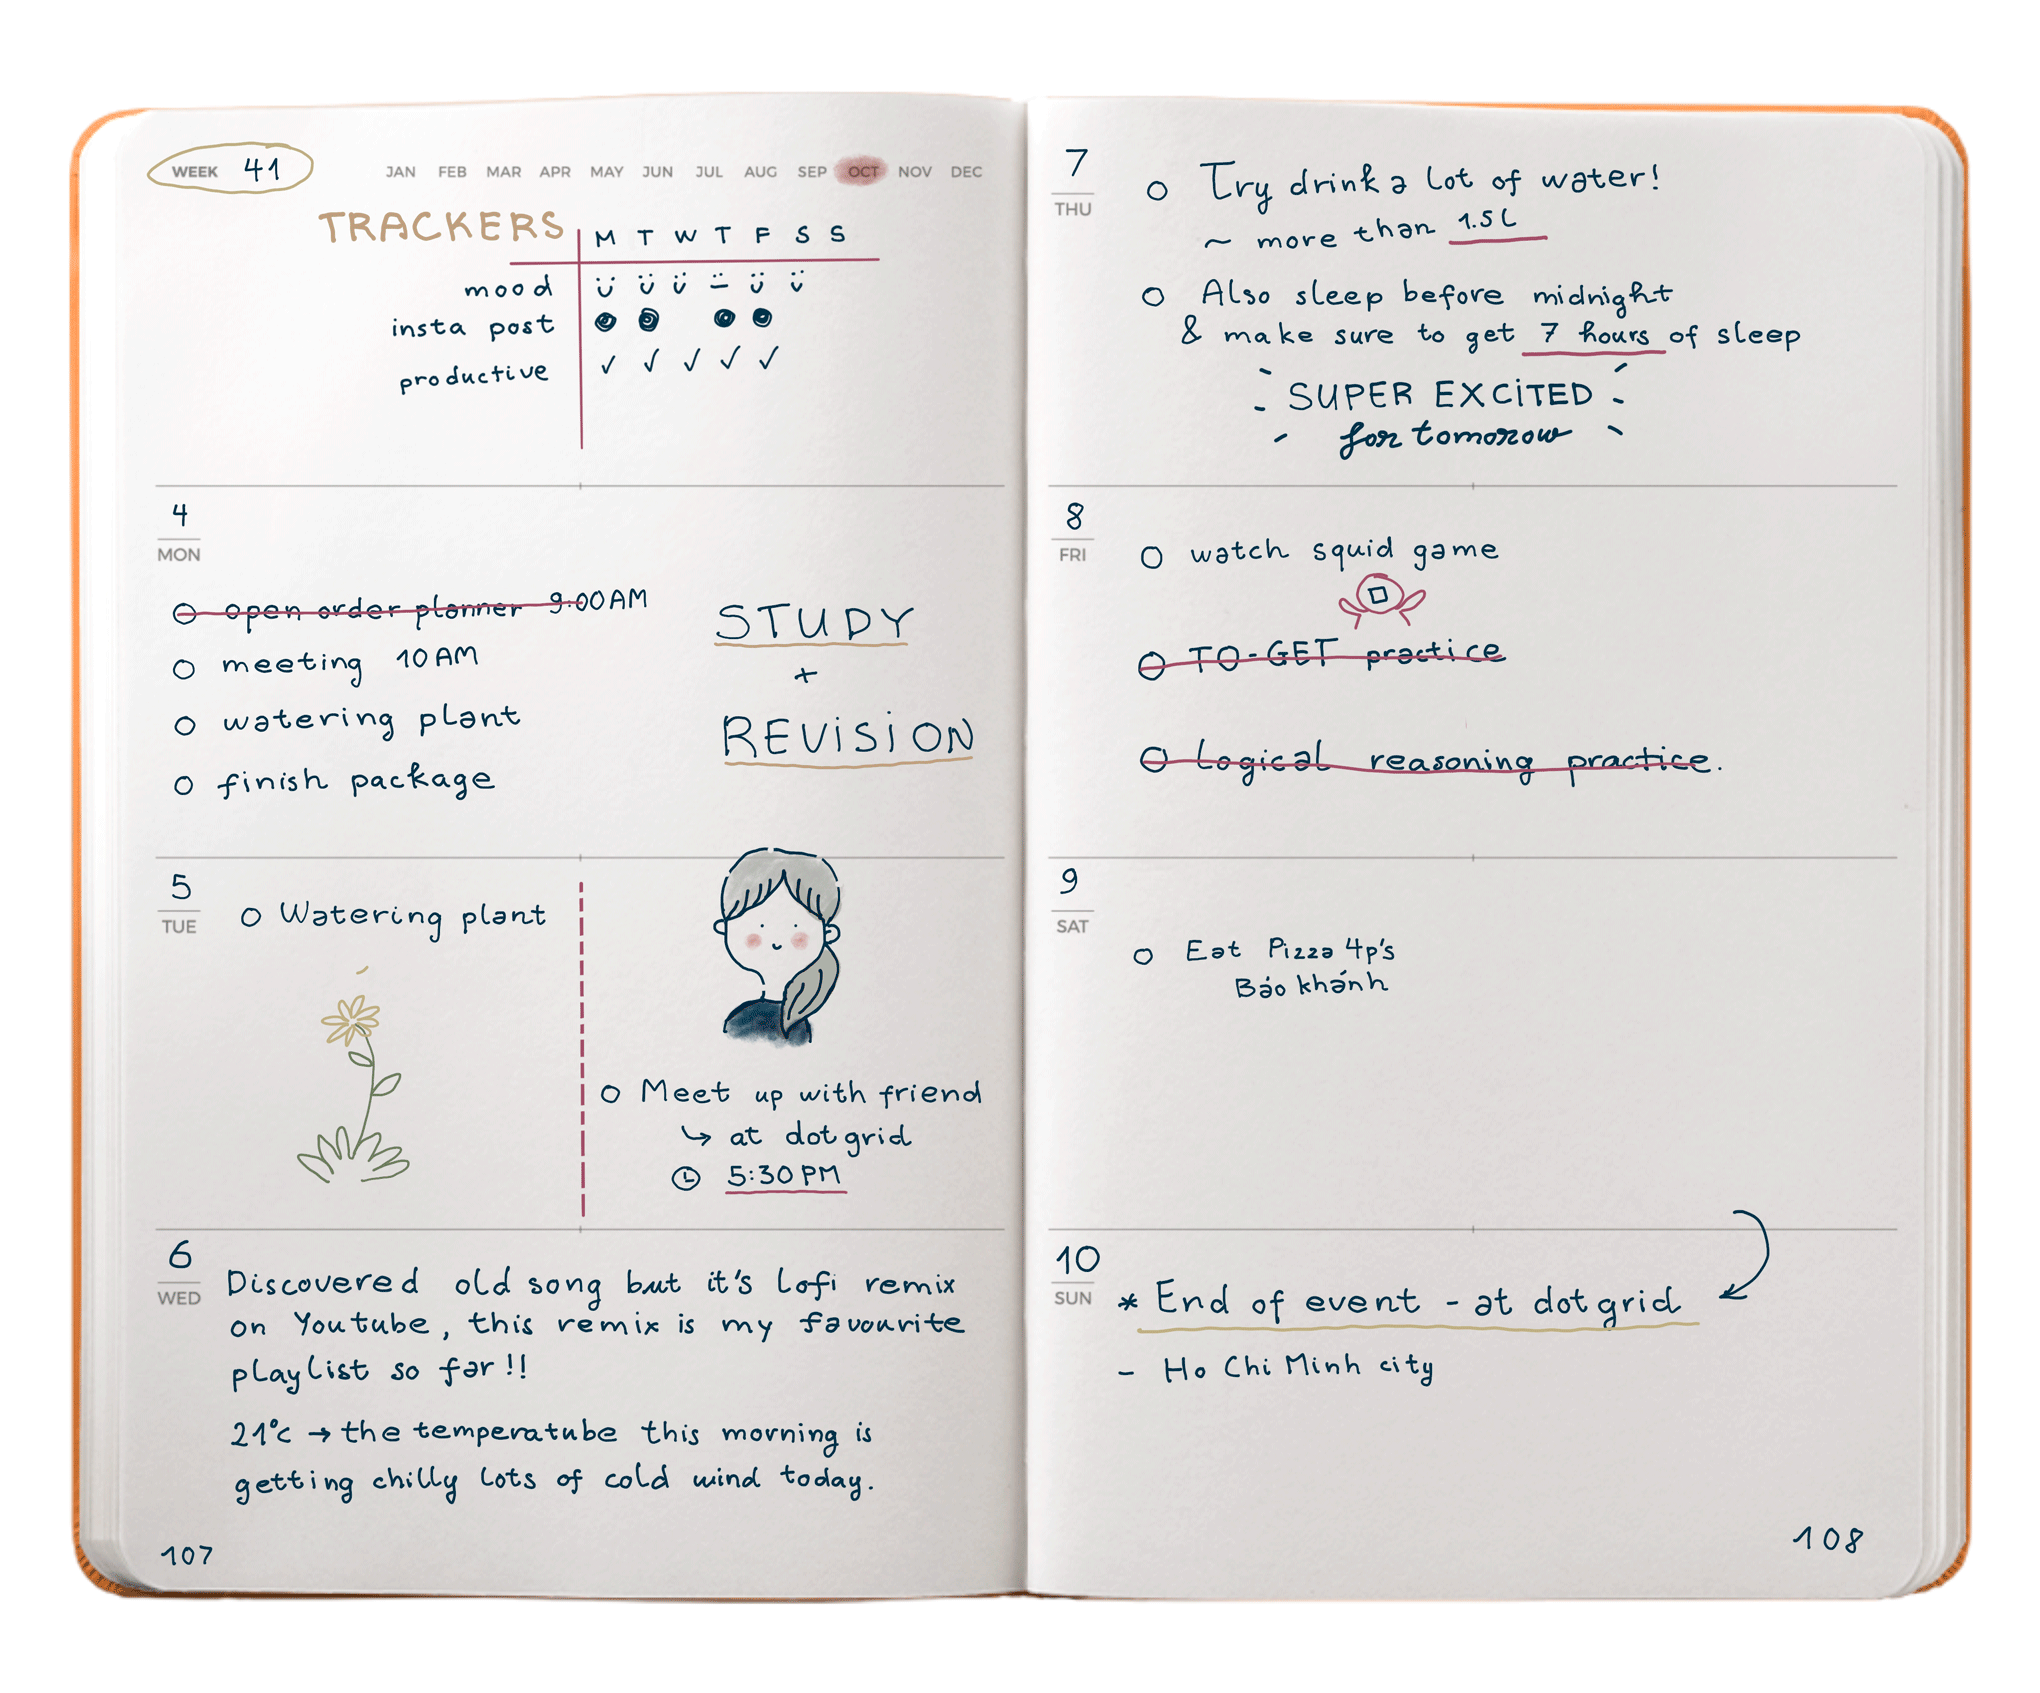 WEEK 41
JAN FEB MAR APR MAY JUN JUL AUG SEP OCT NOV DEC
TRACKERS
M T W T F S S
mood
insta post
productive
4
MON
open order planner 9:00AM
meeting 10AM
watering plant
finish package
STUDY
+
REVISION
5
TUE
Watering plant
Meet up with friend
↳ at dot grid
5:30PM
6
WED
Discovered old song but it's lofi remix
on Youtube, this remix is my favourite
playlist so far!!
21°c → the temperatube this morning is
getting chilly lots of cold wind today.
107
7
THU
Try drink a lot of water!
~ more than 1.5L
Also sleep before midnight
& make sure to get 7 hours of sleep
SUPER EXCITED
for tomorow
8
FRI
watch squid game
TO-GET practice
Logical reasoning practice.
9
SAT
Eat Pizza 4p's
Bảo khánh
10
SUN
* End of event - at dot grid
- Ho Chi Minh city
108